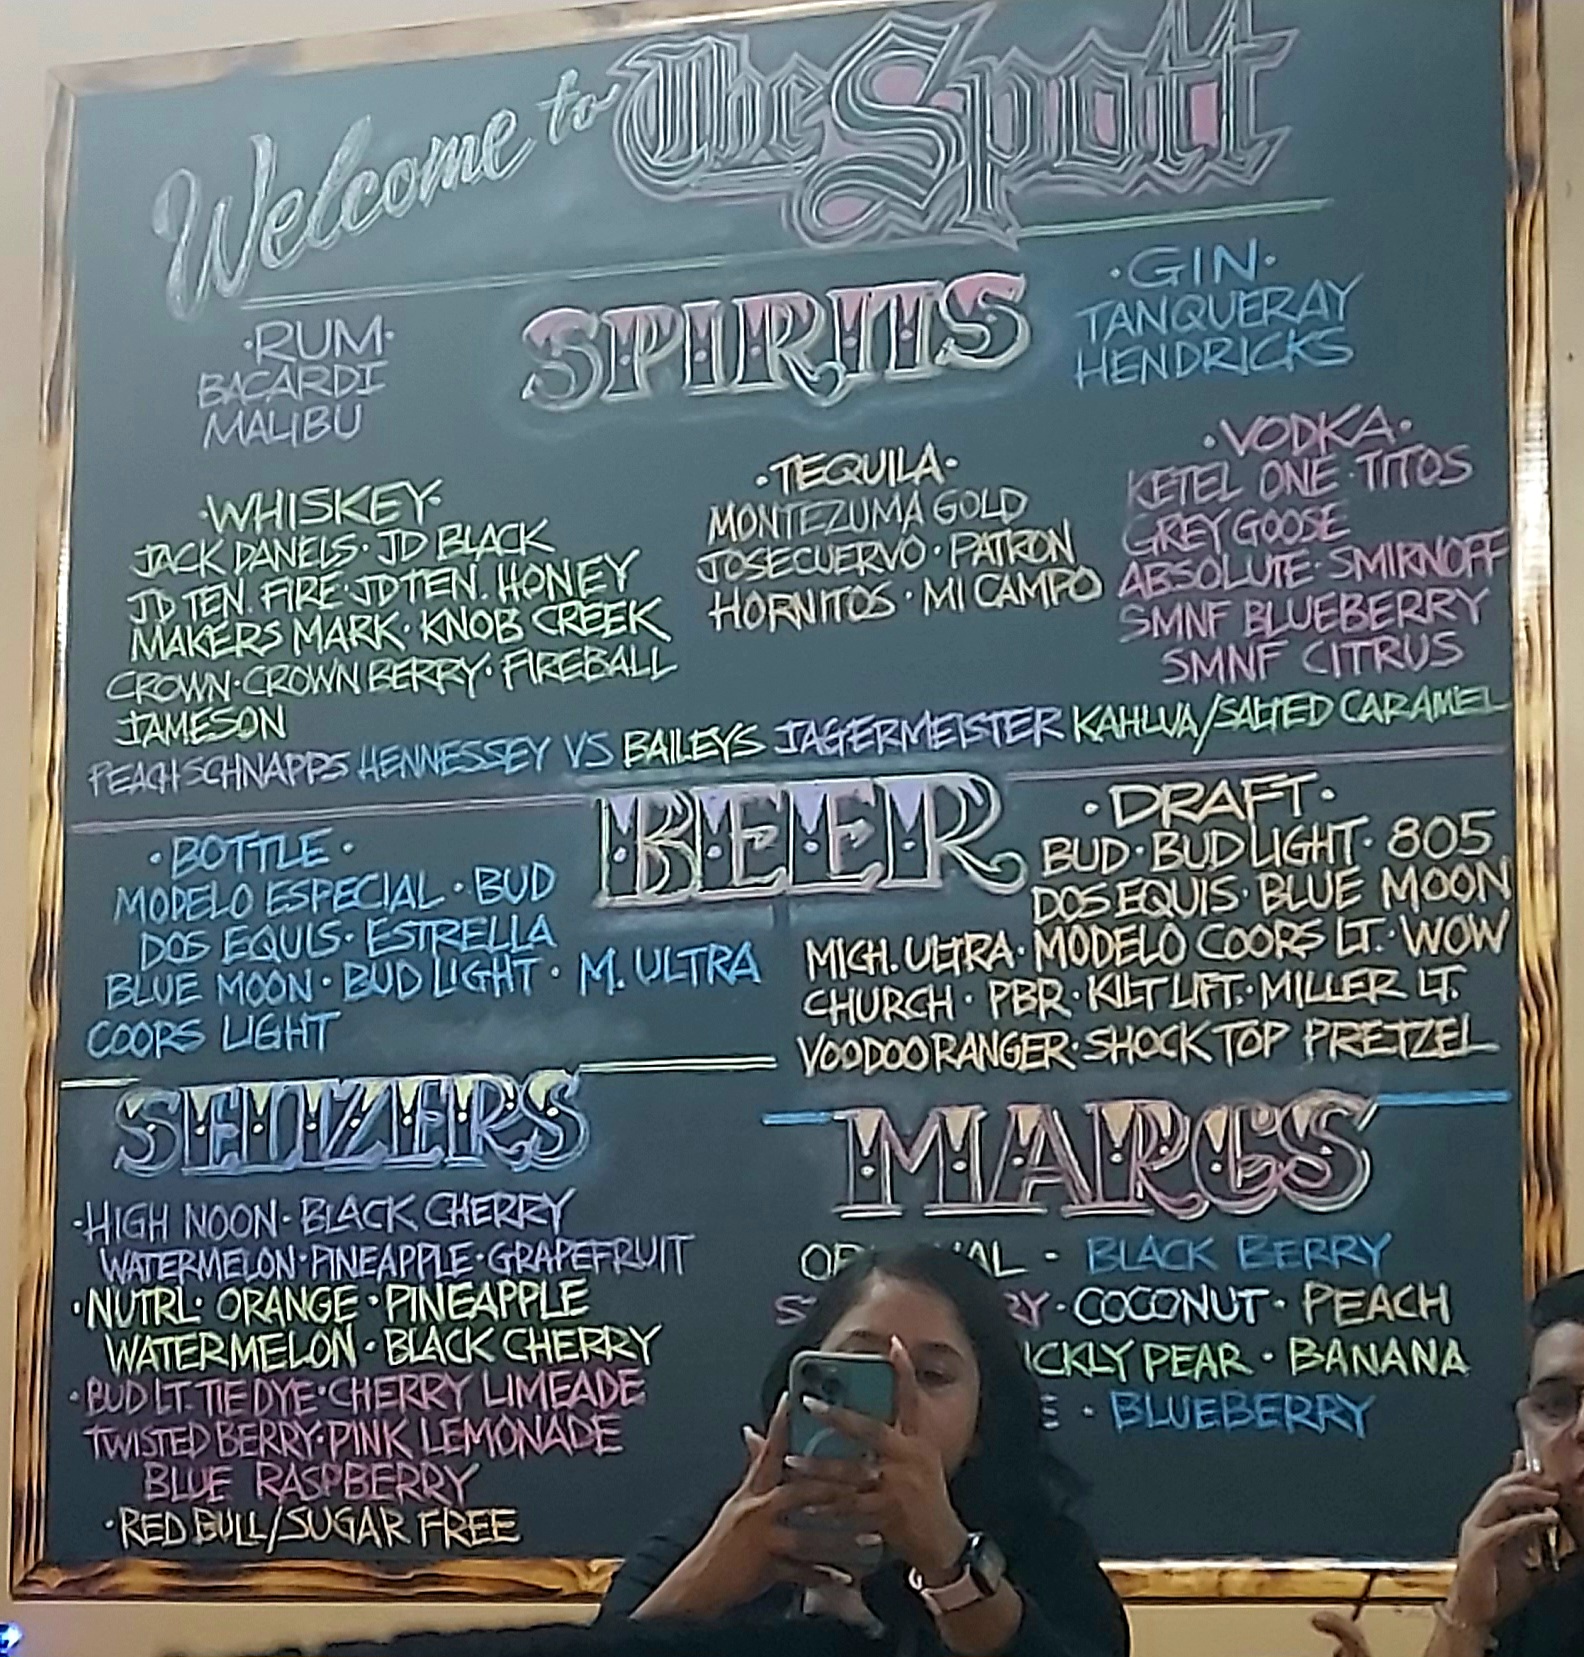 Welcome to The Spott
SPIRITS
·RUM·
BACARDI
MALIBU
·GIN·
TANQUERAY
HENDRICKS
·WHISKEY·
JACK DANELS · JD BLACK
JD TEN. FIRE · JD TEN. HONEY
MAKERS MARK · KNOB CREEK
CROWN · CROWN BERRY · FIREBALL
JAMESON
·TEQUILA·
MONTEZUMA GOLD
JOSE CUERVO · PATRON
HORNITOS · MI CAMPO
·VODKA·
KETEL ONE · TITOS
GREY GOOSE
ABSOLUTE · SMIRNOFF
SMNF BLUEBERRY
SMNF CITRUS
PEACH SCHNAPPS HENNESSEY VS BAILEYS JAGERMEISTER KAHLUA/SALTED CARAMEL
BEER
·BOTTLE·
MODELO ESPECIAL · BUD
DOS EQUIS · ESTRELLA
BLUE MOON · BUD LIGHT · M. ULTRA
COORS LIGHT
·DRAFT·
BUD · BUD LIGHT · 805
DOS EQUIS · BLUE MOON
MICH. ULTRA · MODELO COORS LT. · WOW
CHURCH · PBR · KILT LIFT. · MILLER LT.
VOODOO RANGER · SHOCK TOP PRETZEL
SELTZERS
·HIGH NOON · BLACK CHERRY
WATERMELON · PINEAPPLE · GRAPEFRUIT
·NUTRL · ORANGE · PINEAPPLE
WATERMELON · BLACK CHERRY
·BUD LT. TIE DYE · CHERRY LIMEADE
TWISTED BERRY · PINK LEMONADE
BLUE RASPBERRY
·RED BULL/SUGAR FREE
MARGS
- BLACK BERRY
· COCONUT · PEACH
PEAR · BANANA
· BLUEBERRY